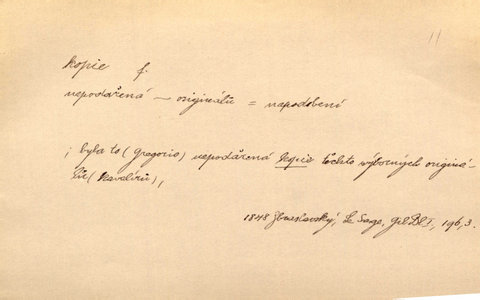 11
kopie f.
nepodařená — originálů = napodobení
; byla to (Gregorio) nepodařená kopie těchto výborných originá-
lů (kavalírů),
1848 Zbraslavský, Le Sage, Gil Bl. I, 196,3.